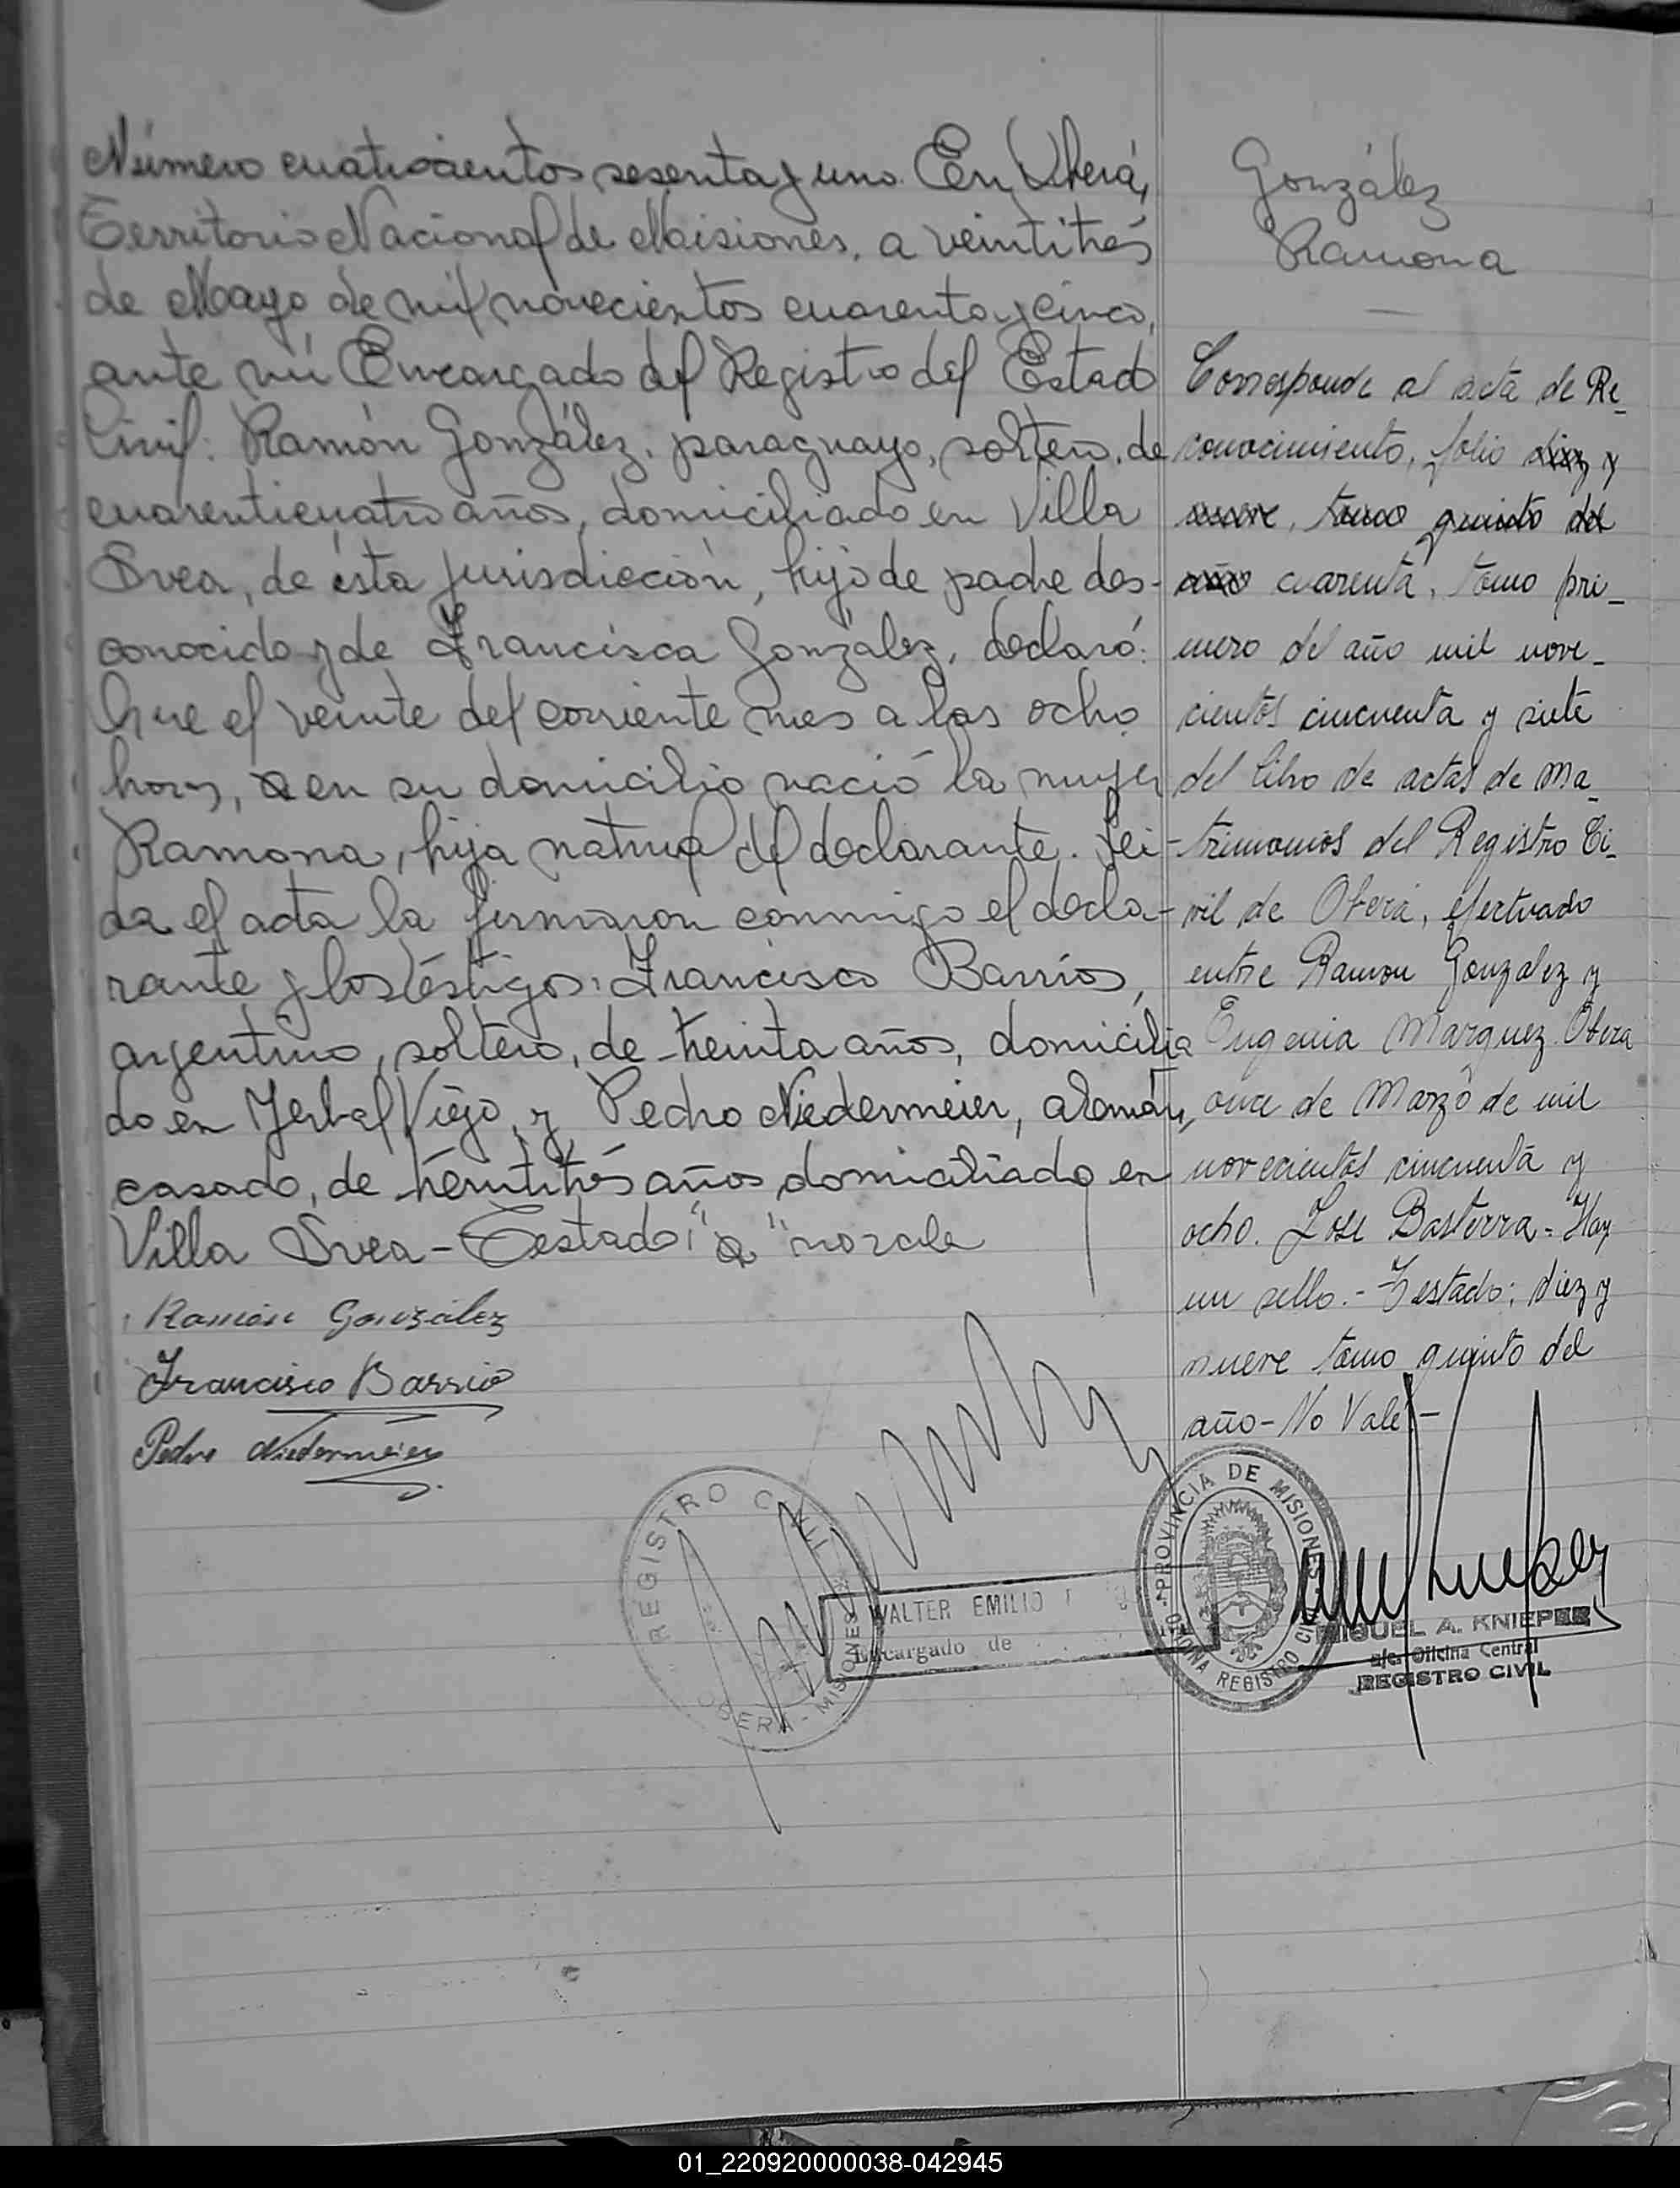 Número cuatrocientos sesenta y uno. En Oberá,
Territorio Nacional de Misiones, a veintitrés
de Mayo de mil novecientos cuarenta y cinco,
ante mí Encargado del Registro del Estado
Civil: Ramón González, paraguayo, soltero, de
cuarenticuatro años, domiciliado en Villa
Svea, de ésta jurisdicción, hijo de padre des-
conocido y de Francisca González, declaró:
Que el veinte del corriente mes a las ocho
horas, a en su domicilio nació la mujer
Ramona, hija natural del declarante. Lei-
da el acta la firmaron conmigo el decla-
rante y los testigos: Francisco Barrios,
argentino, soltero, de treinta años, domicilia
do en Yerbal Viejo, y Pedro Niedermeier, alemán,
casado, de treintitrés años domiciliado en
Villa Svea - Testado: "a" no vale
Ramón González
Francisco Barrio
Pedro Niedermeier
González
Ramona
Corresponde al acta de Re-
conocimiento, folio diez y
nueve, tomo quinto del
año cuarenta, tomo pri-
mero del año mil nove-
cientos cincuenta y siete
del libro de actas de Ma-
trimonios del Registro Ci-
vil de Oberá, efectuado
entre Ramon Gonzalez y
Eugenia Marquez. Obera
once de Marzo de mil
novecientos cincuenta y
ocho. Jose Basterra = Hay
un sello.- Testado: diez y
nueve tomo quinto del
año - No Vale -
REGISTRO CIVIL
OBERA - MISIONES
WALTER EMILIO
Encargado de
PROVINCIA DE MISIONES
REGISTRO CIVIL
MIGUEL A. KNIEPER
a/c. Oficina Central
REGISTRO CIVIL
01_220920000038-042945